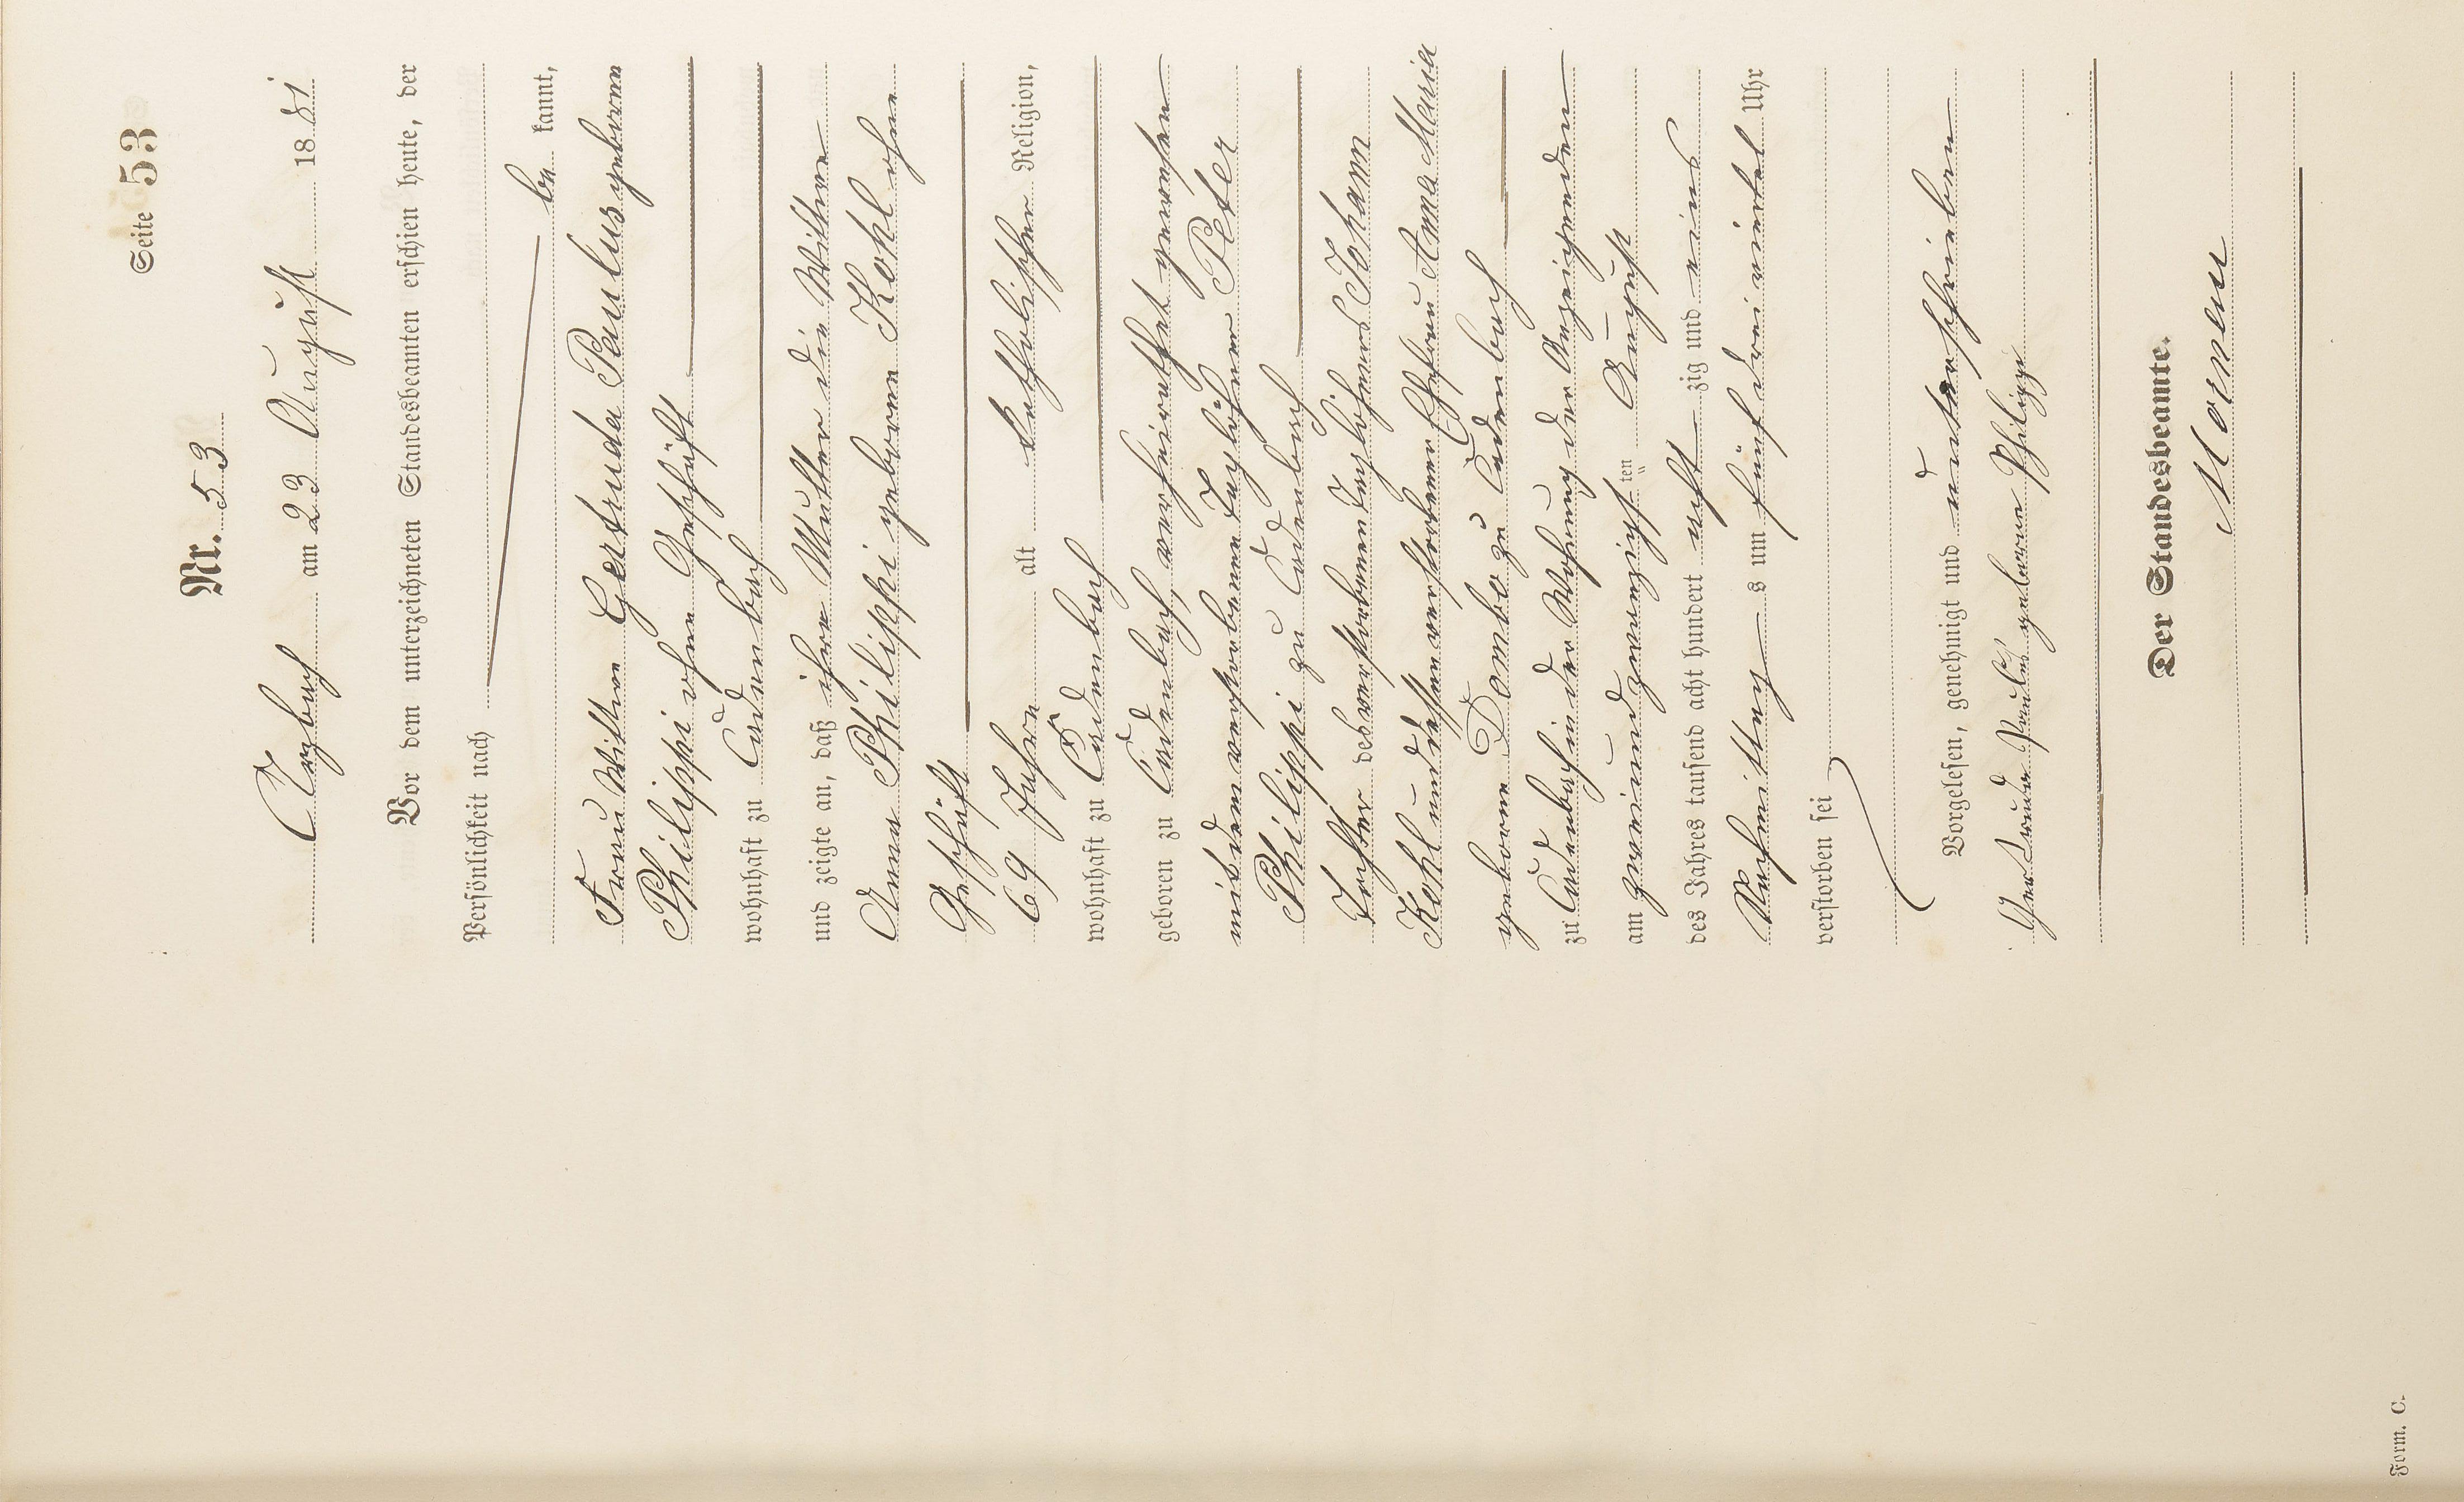 Seite 53
Nr. 53
Arzbach am 23 August 1881
Vor dem unterzeichneten Standesbeamten erschien heute, der
Persönlichkeit nach
be kannt,
Frau Wittwe Gertruda Paulus geborene
Philippi ohne Geschäft
wohnhaft zu Cadenbach
und zeigte an, daß ihre Mutter die Wittwe
Anna Philippi geborene Kohl ohne
Geschäft
69 Jahre alt katholischer Religion,
wohnhaft zu Cadenbach
geboren zu Cadenbach, verheirathet gewesen
mit dem verstorbenen Taglöhner Peter
Philippi zu Cadenbach
Tochter des verstorbenen Taglöhners Johann
Kohl und dessen verstorbener Ehefrau Anna Maria
geborene Dombo zu Cadenbach
zu Cadenbach in der Wohnung der Anzeigenden
am zweiundzwanzigsten August
des Jahres tausend acht hundert acht zig und eins
Nachmittag s um fünf drei viertel Uhr
verstorben sei
Vorgelesen, genehmigt und unterschrieben
Gertrude Paulus geborene Philippi
Der Standesbeamte.
Form. C.